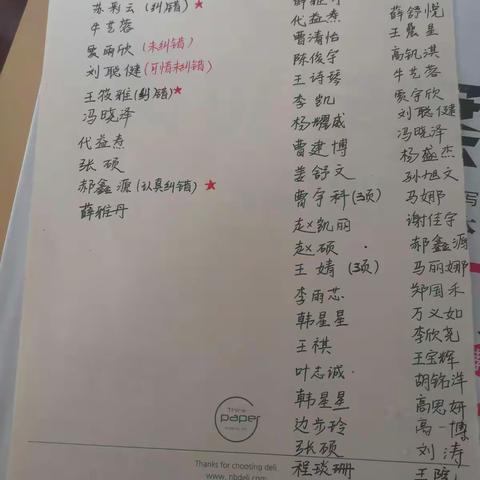 苏彩云（纠错）★
牛艺蓉
贾雨欣（未纠错）
刘聪健（可惜未纠错）
王筱雅（纠错）★
冯晓泽
代益焘
张硕
郝鑫源（认真纠错）★
薛雅丹
代益焘
曹清怡
陈俊宇
王诗琴
李凯
杨耀威
曹建博
姜舒文
曹宇科（3项）
赵凯丽
赵硕
王婧（3项）
李雨芯
韩星星
王祺
叶志诚
韩星星
边步玲
张硕
程琰珊
薛舒悦
王晨星
高钒淇
牛艺蓉
贾宇欣
刘聪健
冯晓泽
杨盛杰
孙旭文
马娜
谢佳宇
郝鑫源
马丽娜
郑国禾
万义如
李欣尧
王宝辉
胡铭洋
高思妍
高一博
刘涛
Think
paper
Thanks for choosing deli
www.nbdeli.com